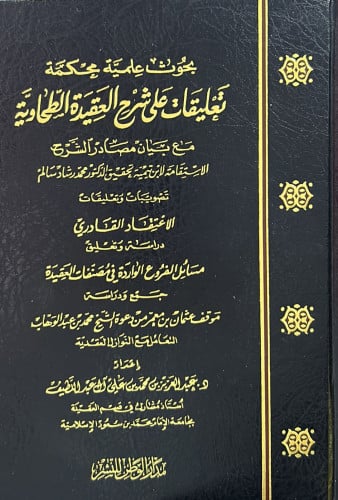 بحوث علمية محكمة
تعليقات على شرح العقيدة الطحاوية
مع بيان مصادر الشرح
الاستقامة لابن تيمية بتحقيق الدكتور محمد رشاد سالم
تصويبات وتعليقات
الاعتقاد القادري
دراسة وتعليق
مسائل الفروع الواردة في مصنفات العقيدة
جمع ودراسة
موقف عثمان بن معمر من دعوة الشيخ محمد بن عبد الوهاب
التعامل مع النوازل العقدية
إعداد
د. عبد العزيز بن محمد بن علي آل عبد اللطيف
أستاذ مشارك في قسم العقيدة
بجامعة الإمام محمد بن سعود الإسلامية
مدار الوطن للنشر